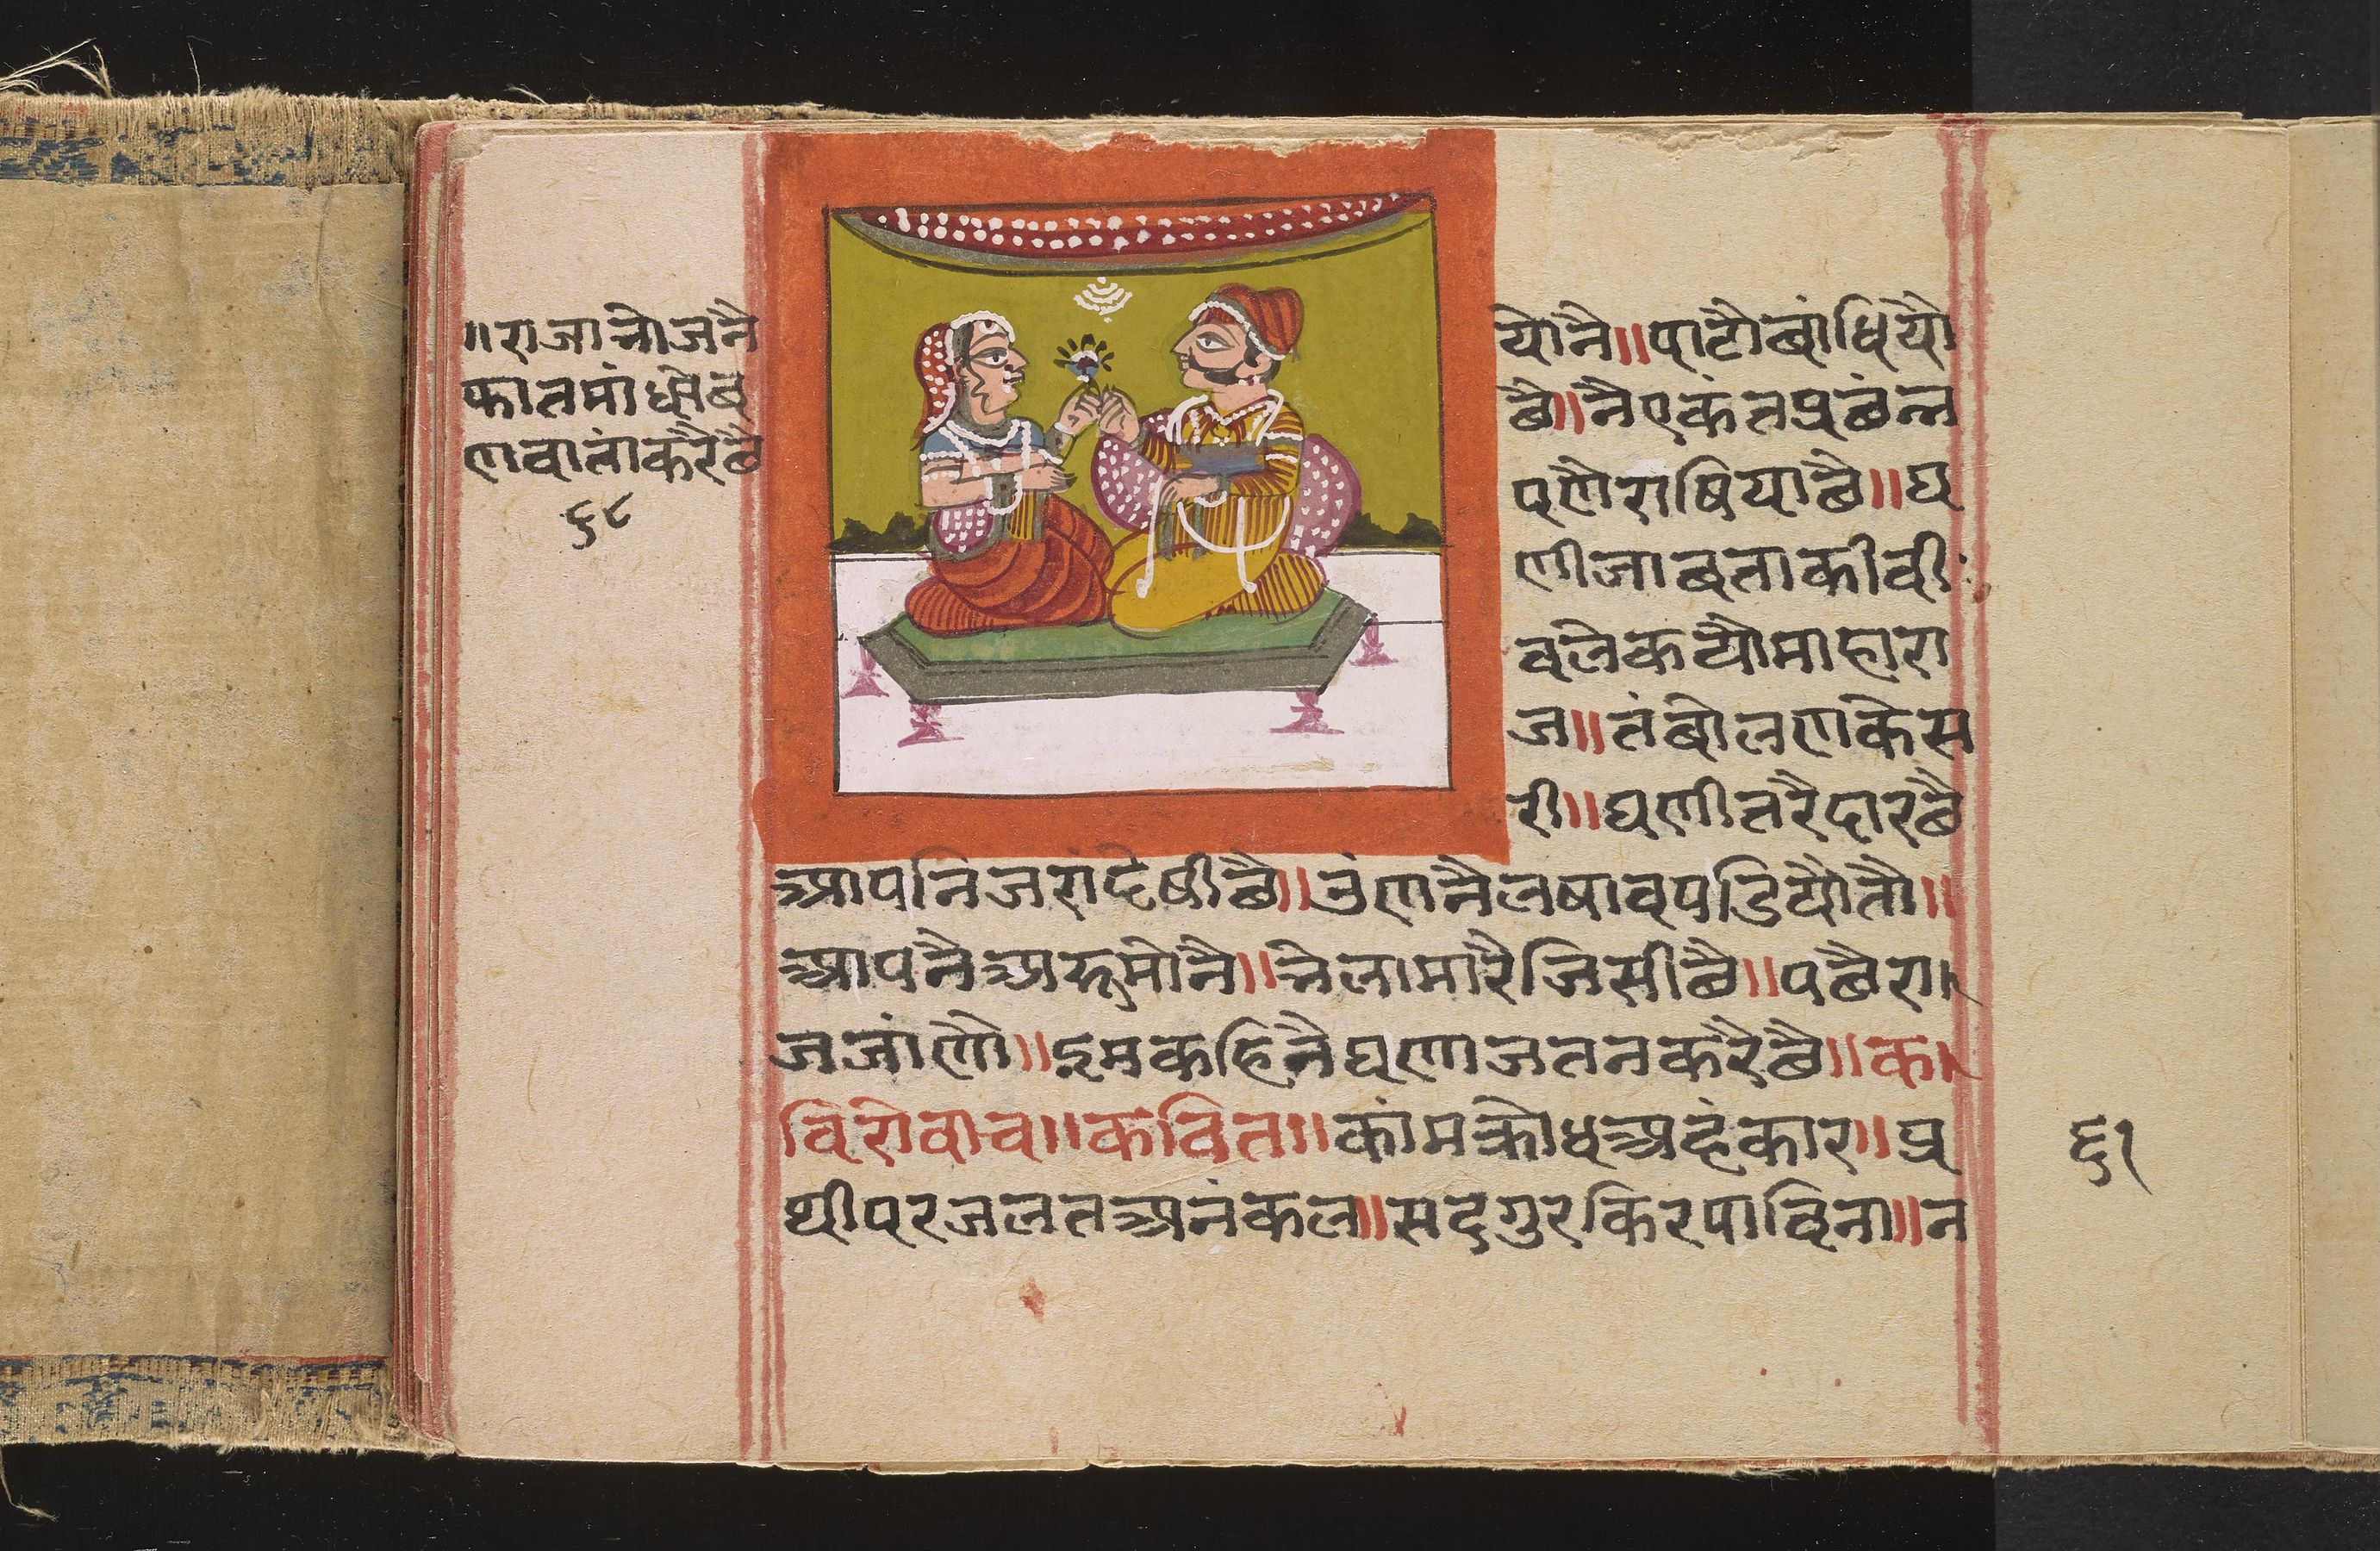 ॥राजा नोजनै
कातमां षोब
णवातां करै बै
६८
योनै॥पाटौ बांधियौ
बै॥नै एकंत प्रबंन्न
पणै राषिया बै॥घ
णी जाबता की वी
वलेकयौ माहारा
ज॥तंबोलण केस
री॥घणी तरैदार बै
आप निजरां देषी बै॥उंणनै लषाव पडियौ तौ॥
आपनै अरु मोनै॥नेला मारै जिसी बै॥पबै रा
ज जांणौ॥इम कहिनै घणा जतन करै बै॥क
विरोवाच॥कवित॥कांम क्रोध अहंकार॥प्र
थी पर जलत अनंकल॥सदगुर किरपा विना॥न
६१